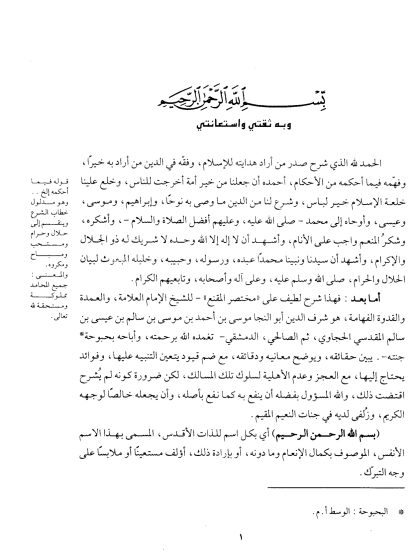 بِسْمِ اللَّهِ الرَّحْمَٰنِ الرَّحِيمِ
وبه ثقتي واستعانتي
الحمد لله الذي شرح صدر من أراد هدايته للإسلام، وفقّه في الدين من أراد به خيرًا،
وفهّمه فيما أحكمه من الأحكام، أحمده أن جعلنا من خير أمة أخرجت للناس، وخلع علينا
خلعة الإسلام خير لباس، وشرع لنا من الدين ما وصى به نوحًا، وإبراهيم، وموسى،
وعيسى، وأوحاه إلى محمد - صلى الله عليه، وعليهم أفضل الصلاة والسلام -، وأشكره،
وشكرُ المنعم واجب على الأنام، وأشهد أن لا إله إلا الله وحده لا شريك له ذو الجلال
والإكرام، وأشهد أن سيدنا ونبينا محمدًا عبده، ورسوله، وحبيبه، وخليله المبعوث لبيان
الحلال والحرام، صلى الله وسلم عليه، وعلى آله وأصحابه، وتابعيهم الكرام.
أما بعد : فهذا شرح لطيف على «مختصر المقنع» - للشيخ الإمام العلامة، والعمدة
والقدوة الفهامة، هو شرف الدين أبو النجا موسى بن أحمد بن موسى بن سالم بن عيسى بن
سالم المقدسي الحجاوي، ثم الصالحي، الدمشقي- تغمده الله برحمته، وأباحه بحبوحة*
جنته-. يبين حقائقه، ويوضح معانيه ودقائقه، مع ضم قيود يتعين التنبيه عليها، وفوائد
يحتاج إليها، مع العجز وعدم الأهلية لسلوك تلك المسالك، لكن ضرورة كونه لم يُشرح
اقتضت ذلك، والله المسؤول بفضله أن ينفع به كما نفع بأصله، وأن يجعله خالصًا لوجهه
الكريم، وزُلفى لديه في جنات النعيم المقيم.
(بسم الله الرحمن الرحيم) أي بكل اسم للذات الأقدس، المسمى بهذا الاسم
الأنفس، الموصوف بكمال الإنعام وما دونه، أو بإرادة ذلك، أؤلف مستعينًا أو ملابسًا على
وجه التبرك.
قوله فيما
أحكمه إلخ . .
وهو مدلول
خطاب الشرع
وينقسم إلى
حلال وحرام
ومستحب
ومباح
ومكروه.
والمعنى :
جميع المحامد
مملوكة
ومستحقة لله
تعالى.
* البحبوحة : الوسط أ.م.
١